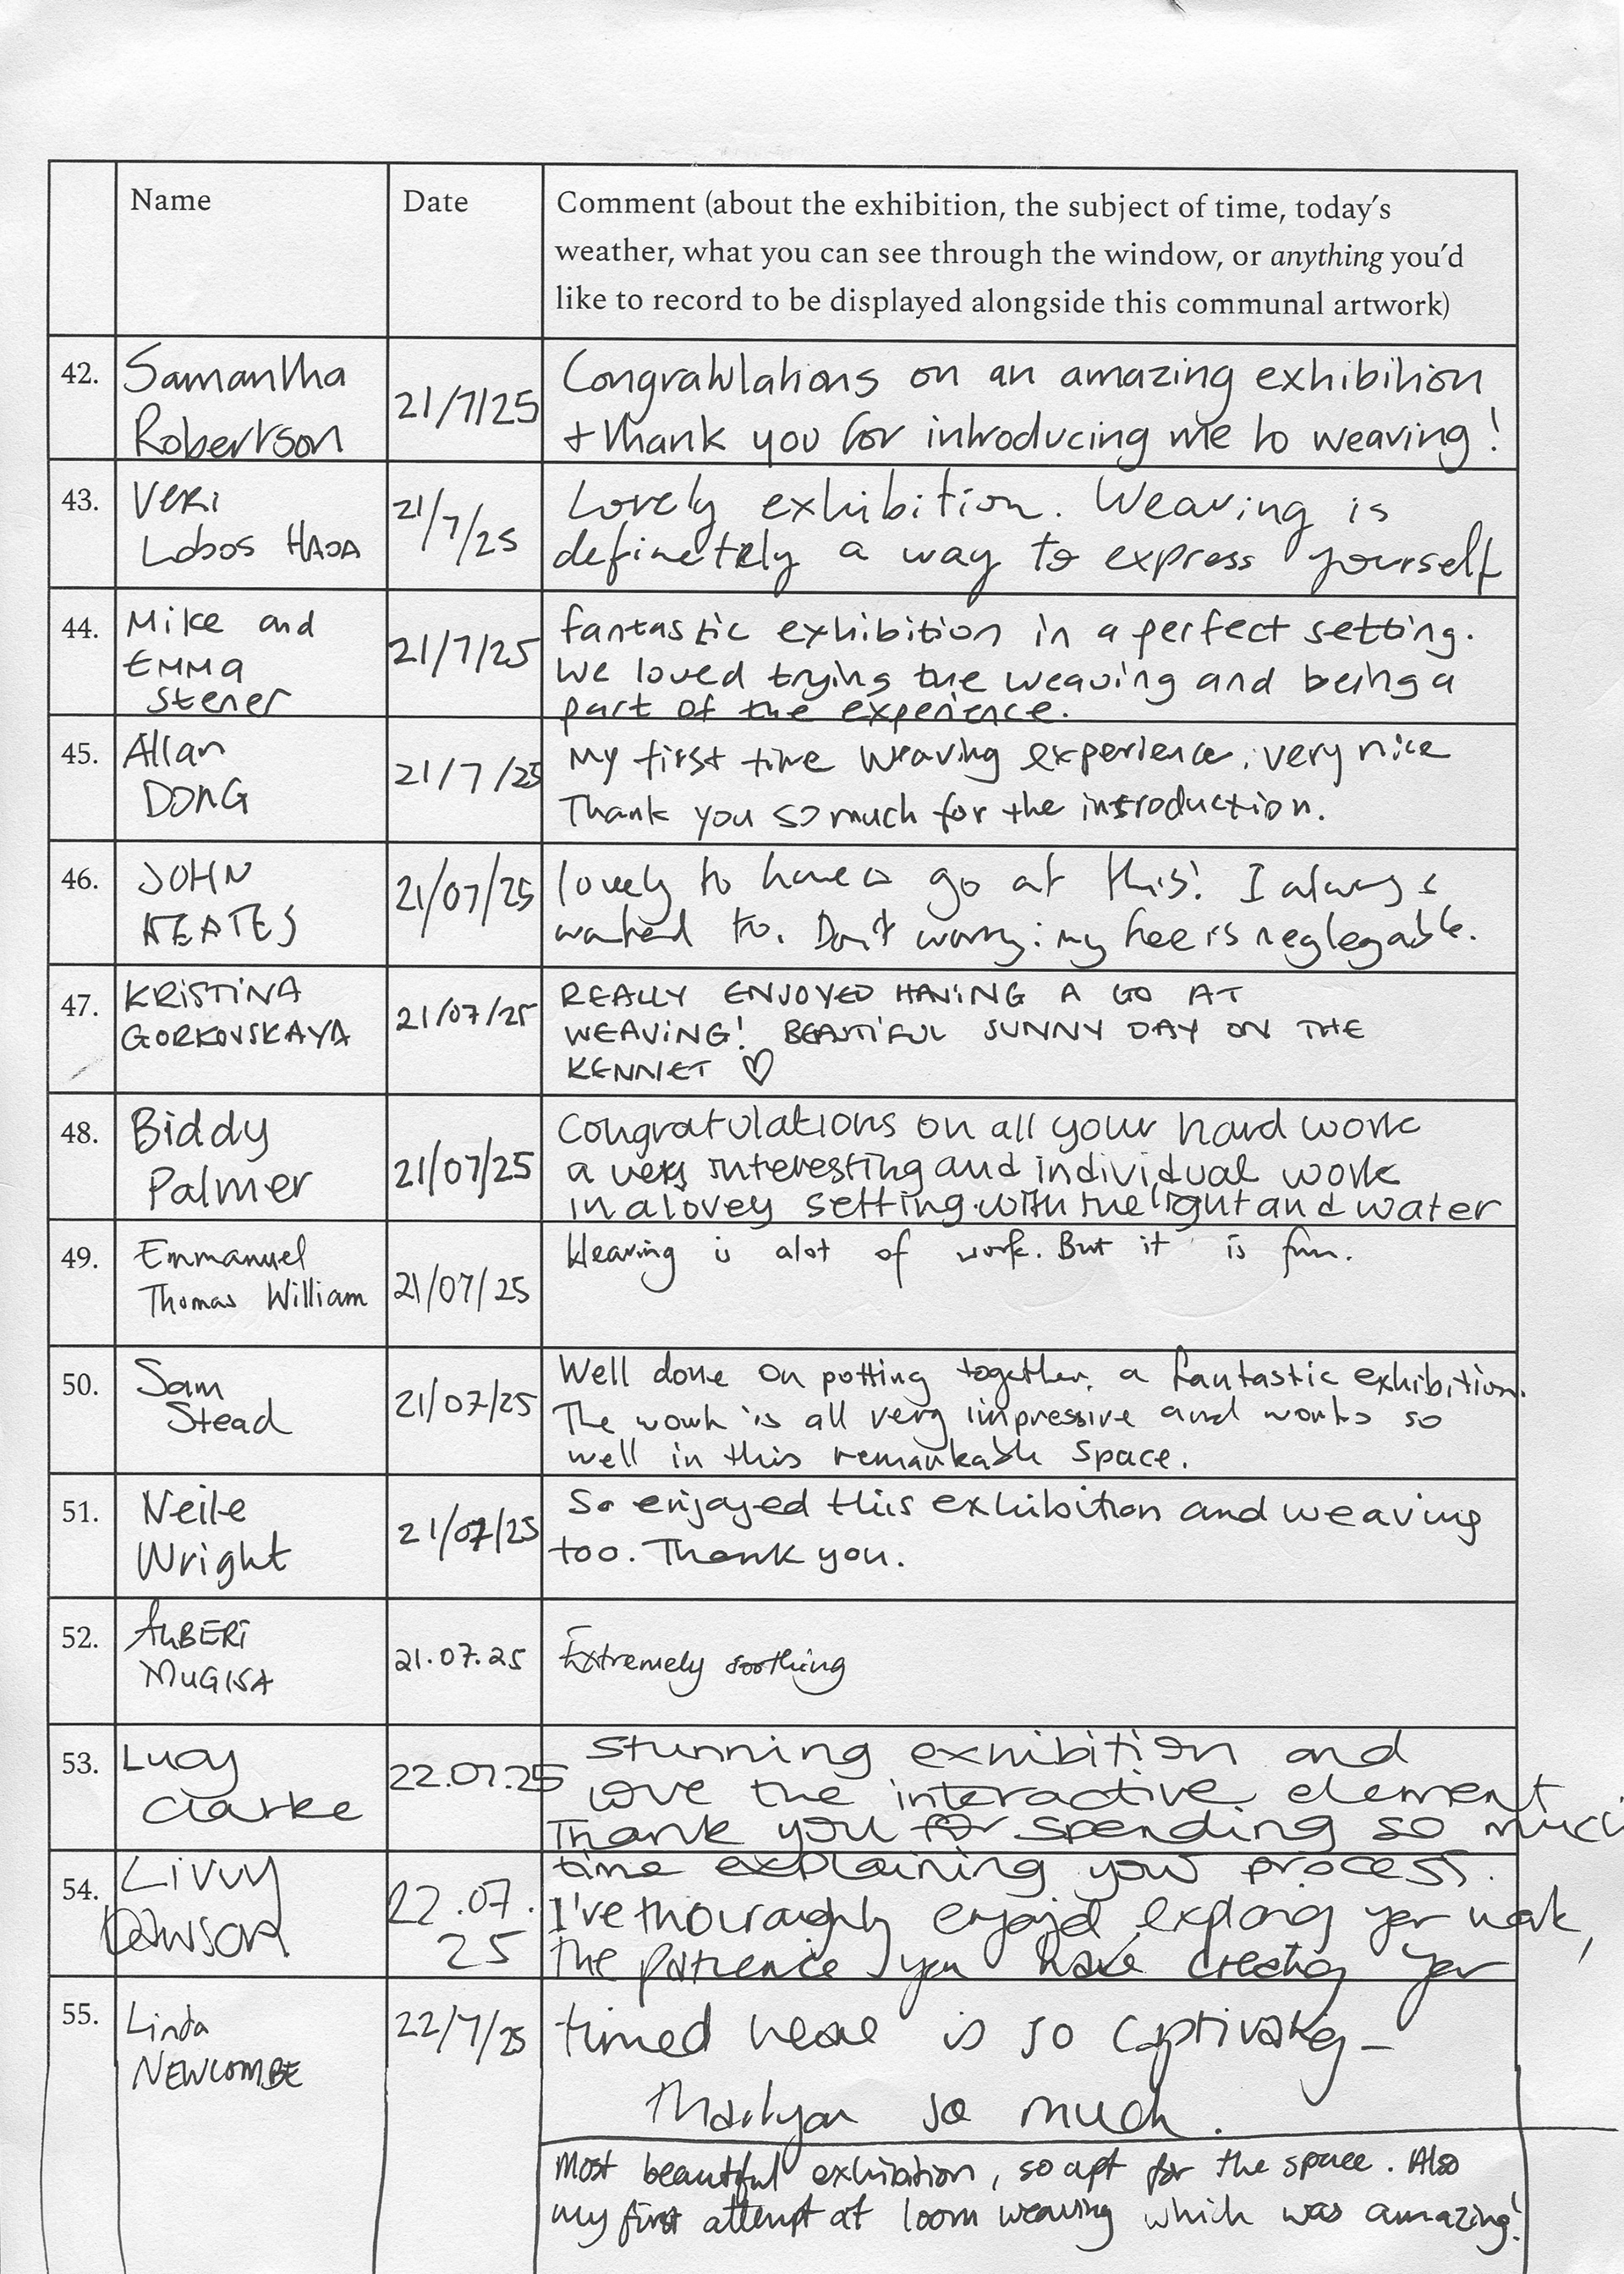 Name Date Comment (about the exhibition, the subject of time, today's
weather, what you can see through the window, or anything you'd
like to record to be displayed alongside this communal artwork)
42. Samantha Robertson 21/7/25 Congratulations on an amazing exhibition
+ thank you for introducing me to weaving!
43. Veri Lobos 21/7/25 Lovely exhibition. Weaving is
definetely a way to express yourself
44. Mike and EMMA Stener 21/7/25 fantastic exhibition in a perfect setting.
We loved trying the weaving and being a
part of the experience.
45. Allan DONG 21/7/25 My first time weaving experience, very nice
Thank you so much for the introduction.
46. JOHN 21/07/25 lovely to have a go at this! I always
wanted to. Don't worry: my fee is neglegable.
47. KRISTINA GORKOVSKAYA 21/07/25 REALLY ENJOYED HAVING A GO AT
WEAVING! BEAUTIFUL SUNNY DAY ON THE
KENNET ♡
48. Biddy Palmer 21/07/25 Congratulations on all your hard work
a very interesting and individual work
in a lovey setting with the light and water
49. Emmanuel Thomas William 21/07/25 Weaving is alot of work. But it is fun.
50. Sam Stead 21/07/25 Well done on putting together a fantastic exhibition.
The work is all very impressive and works so
well in this remarkable space.
51. Neile Wright 21/07/25 So enjoyed this exhibition and weaving
too. Thank you.
52. MUGISA 21.07.25 Extremely soothing
53. Lucy Clarke 22.07.25 Stunning exhibition and
love the interactive element
Thank you for spending so much
time explaining your process.
54. Livvy Dawson 22.07.25 I've thouroughly enjoyed exploring your work,
the patience you have creating your
55. Linda NEWCOMBE 22/7/25 timed weave is so captivating –
Thankyou so much.
Most beautiful exhibition, so apt for the space. Also
my first attempt at loom weaving which was amazing!